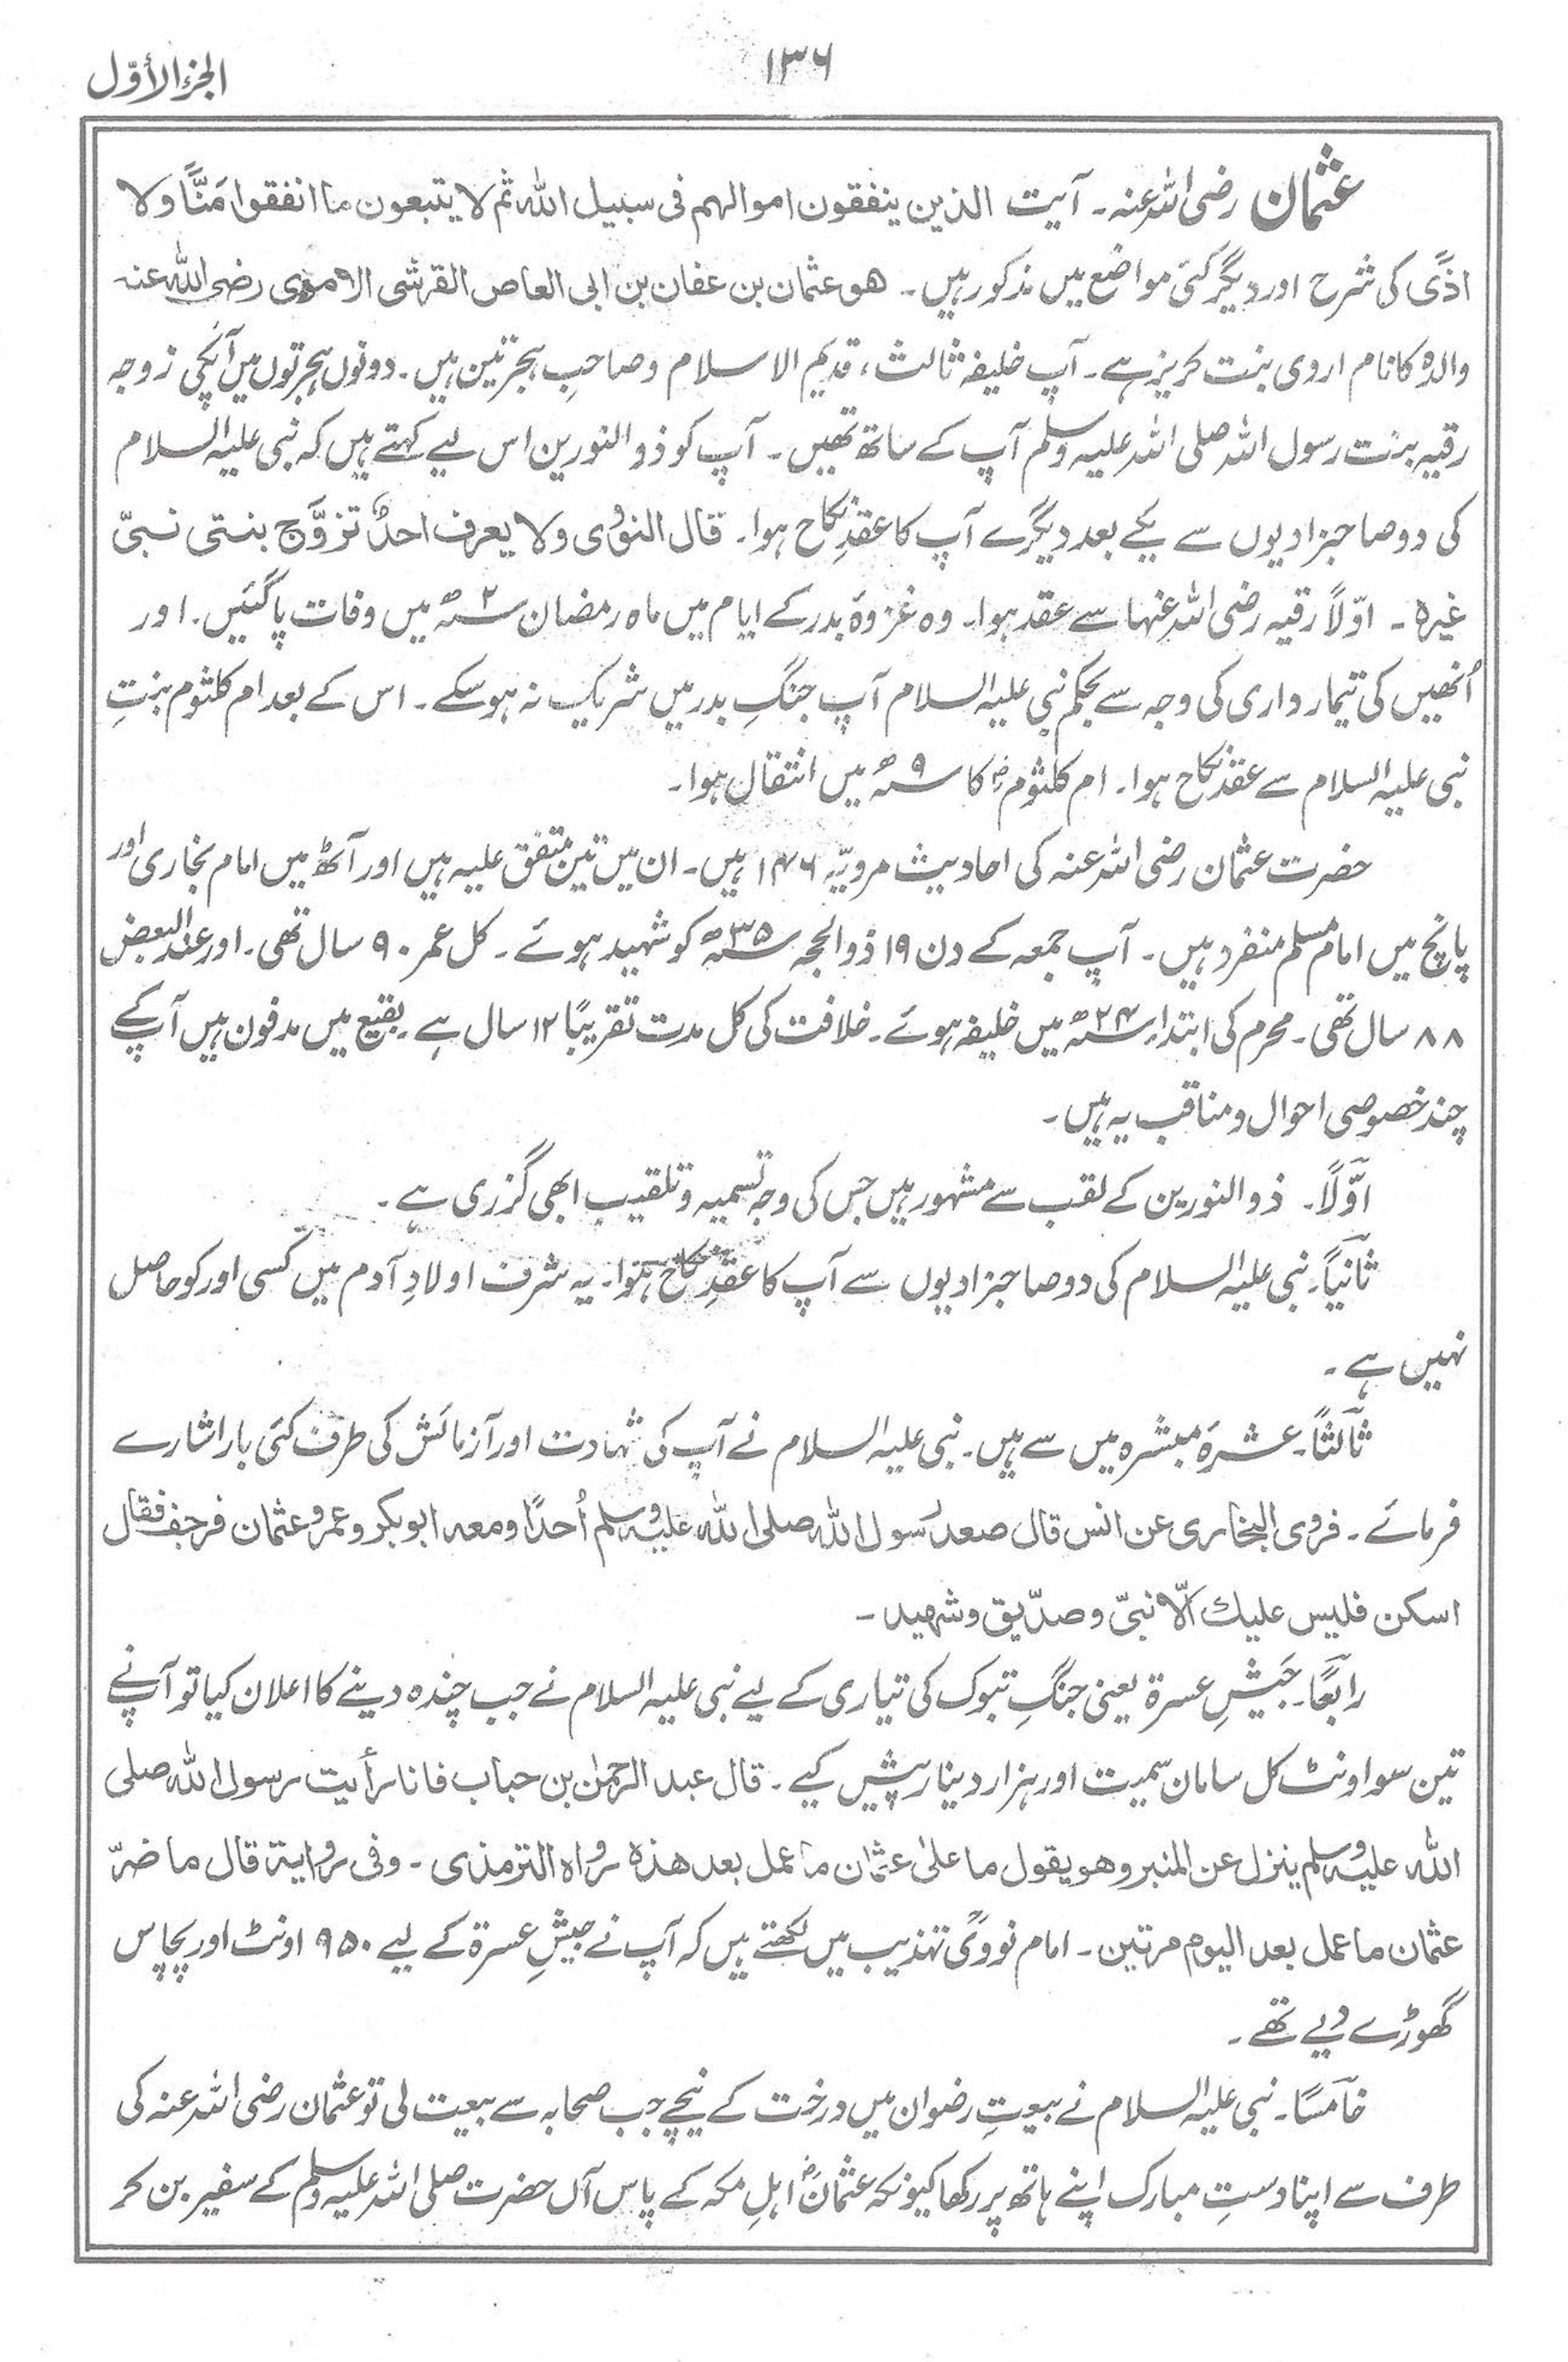 الجزء الأوّل
۱۳۶
عثمان رضی اللہ عنہ۔ آیت الذین ینفقون اموالھم فی سبیل اللہ ثم لا یتبعون ما انفقوا مَنًّا ولا
اذًی کی شرح اور دیگر کئی مواضع میں مذکور ہیں۔ ھو عثمان بن عفان بن ابی العاص القرشی الاموی رضی اللہ عنہ
والدہ کا نام اروی بنت کریز ہے۔ آپ خلیفہ ثالث، قدیم الاسلام و صاحبِ ہجرتین ہیں۔ دونوں ہجرتوں میں آپکی زوجہ
رقیہ بنت رسول اللہ صلی اللہ علیہ وسلم آپ کے ساتھ تھیں۔ آپ کو ذوالنورین اس لیے کہتے ہیں کہ نبی علیہ السلام
کی دو صاحبزادیوں سے یکے بعد دیگرے آپ کا عقدِ نکاح ہوا۔ قال النووی ولا یعرف احدٌ تزوَّج بنتی نبیّ
غیرہ۔ اوّلاً رقیہ رضی اللہ عنہا سے عقد ہوا۔ وہ غزوۂ بدر کے ایام میں ماہ رمضان سنہ ۲ھ میں وفات پا گئیں۔ اور
اُنھیں کی تیمار داری کی وجہ سے بحکم نبی علیہ السلام آپ جنگِ بدر میں شریک نہ ہو سکے۔ اس کے بعد ام کلثوم بنتِ
نبی علیہ السلام سے عقد نکاح ہوا۔ ام کلثومؓ کا سنہ ۹ھ میں انتقال ہوا۔
حضرت عثمان رضی اللہ عنہ کی احادیث مرویّہ ۱۴۶ ہیں۔ ان میں تین متفق علیہ ہیں اور آٹھ میں امام بخاری اور
پانچ میں امام مسلم منفرد ہیں۔ آپ جمعہ کے دن ۱۹ ذوالحجہ سنہ ۳۵ھ کو شہید ہوئے۔ کل عمر ۹۰ سال تھی۔ اور عند البعض
۸۸ سال تھی۔ محرم کی ابتداء سنہ ۲۴ھ میں خلیفہ ہوئے۔ خلافت کی کل مدت تقریبًا ۱۲ سال ہے۔ بقیع میں مدفون ہیں آپ کے
چند خصوصی احوال و مناقب یہ ہیں۔
اوّلاً۔ ذوالنورین کے لقب سے مشہور ہیں جس کی وجہ تسمیہ و تلقیب ابھی گزری ہے۔
ثانیاً۔ نبی علیہ السلام کی دو صاحبزادیوں سے آپ کا عقدِ نکاح ہوا۔ یہ شرف اولادِ آدم میں کسی اور کو حاصل
نہیں ہے۔
ثالثاً۔ عشرہ مبشرہ میں سے ہیں۔ نبی علیہ السلام نے آپ کی شہادت اور آزمائش کی طرف کئی بار اشارے
فرمائے۔ فروی البخاری عن انس قال صعد رسول اللہ صلی اللہ علیہ وسلم اُحدًا ومعہ ابوبکر وعمر وعثمان فرجف فقال
اسکن فلیس علیك الّا نبیّ وصدّیق وشھید۔
رابعًا۔ جَیشِ عسرۃ یعنی جنگِ تبوک کی تیاری کے لیے نبی علیہ السلام نے جب چندہ دینے کا اعلان کیا تو آپ نے
تین سو اونٹ کل سامان سمیت اور ہزار دینار پیش کیے۔ قال عبد الرحمٰن بن حباب فانا رأیت رسول اللہ صلی
اللہ علیہ وسلم ینزل عن المنبر وھو یقول ما علیٰ عثمان ما عمل بعد ھذہ رواہ الترمذی۔ وفی روایۃ قال ما ضرّ
عثمان ما عمل بعد الیوم مرتین۔ امام نوویؒ تہذیب میں لکھتے ہیں کہ آپ نے جیشِ عسرۃ کے لیے ۹۵۰ اونٹ اور پچاس
گھوڑے دیے تھے۔
خامسًا۔ نبی علیہ السلام نے بیعتِ رضوان میں درخت کے نیچے جب صحابہ سے بیعت لی تو عثمان رضی اللہ عنہ کی
طرف سے اپنا دستِ مبارک اپنے ہاتھ پر رکھا کیونکہ عثمانؓ اہلِ مکہ کے پاس آں حضرت صلی اللہ علیہ وسلم کے سفیر بن کر